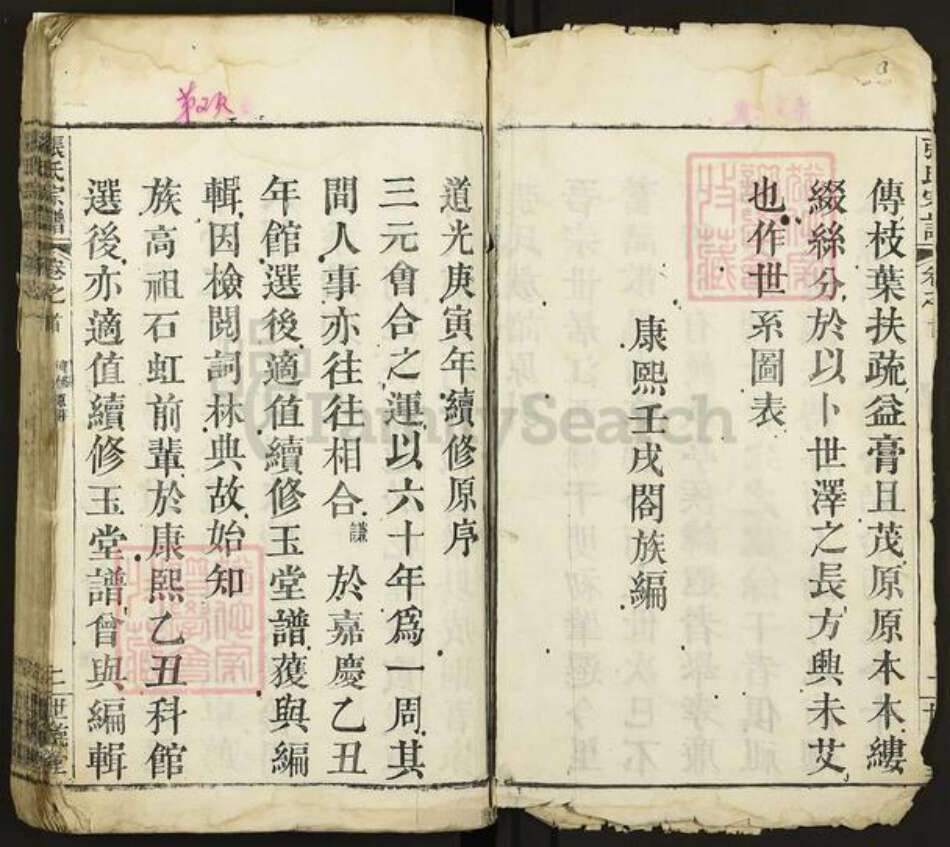 傳枝葉扶疏益膏且茂原原本本縷
綴絲分於以卜世澤之長方興未艾
也作世系圖表
康熙壬戌閤族編
道光庚寅年續修原序
三元會合之運以六十年爲一周其
間人事亦往往相合謙於嘉慶乙丑
年館選後適值續修玉堂譜獲與編
輯因檢閱詞林典故始知
族高祖石虹前輩於康熙乙丑科館
選後亦適值續修玉堂譜曾與編輯
張氏宗譜
卷之首
FamilySearch